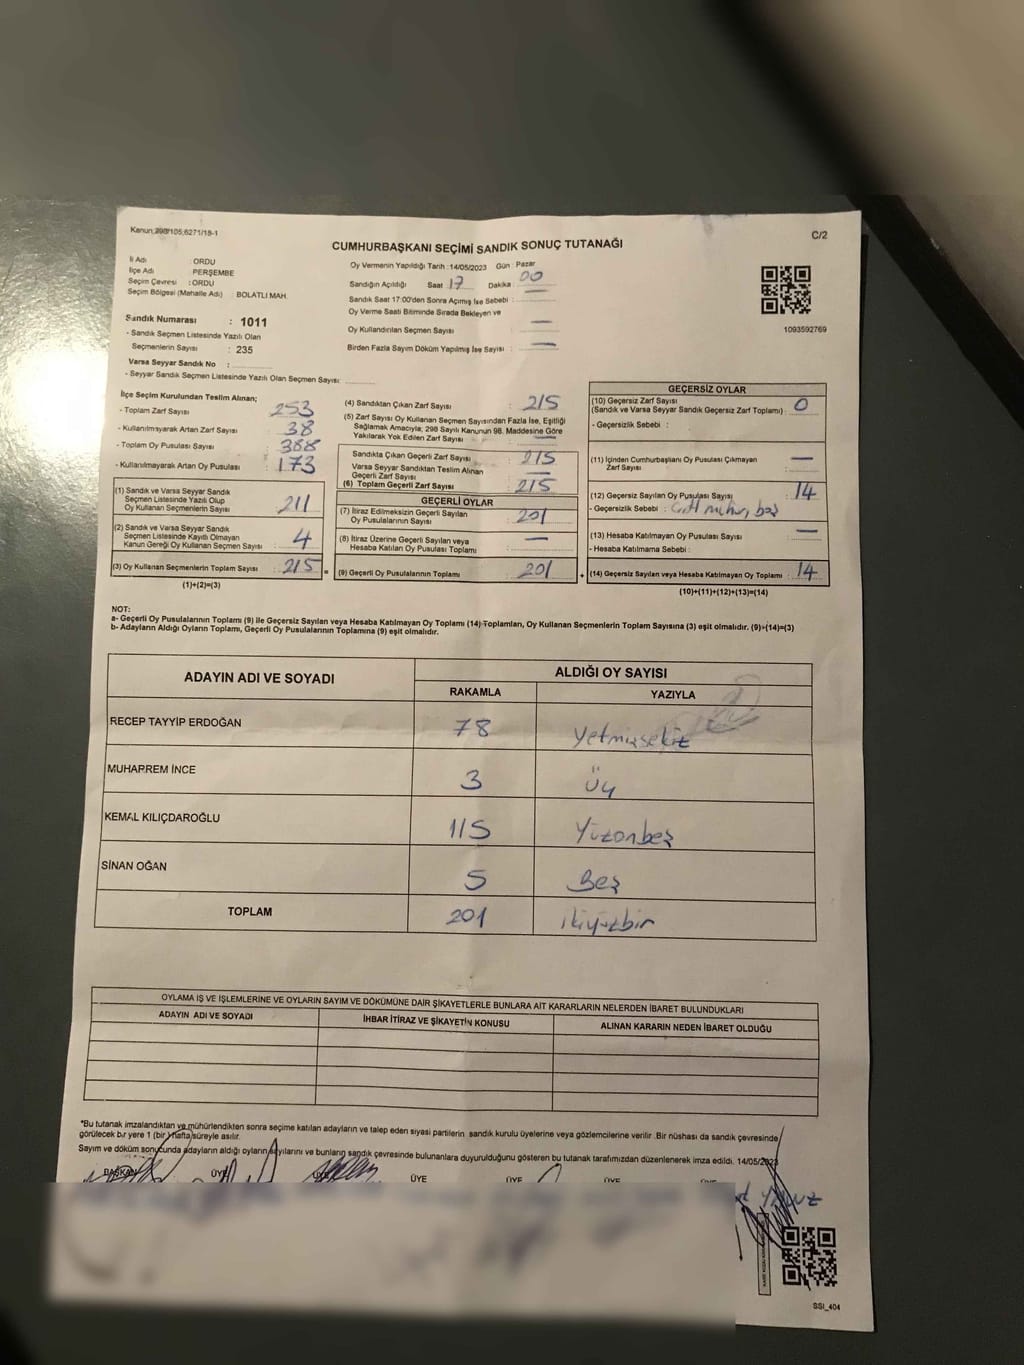 Kanun;298/105,6271/18-1
C/2
CUMHURBAŞKANI SEÇİMİ SANDIK SONUÇ TUTANAĞI
İl Adı : ORDU
İlçe Adı PERŞEMBE
Seçim Çevresi : ORDU
Seçim Bölgesi (Mahalle Adı) : BOLATLI MAH.
Sandık Numarası : 1011
- Sandık Seçmen Listesinde Yazılı Olan
Seçmenlerin Sayısı : 235
Varsa Seyyar Sandık No :
- Seyyar Sandık Seçmen Listesinde Yazılı Olan Seçmen Sayısı:
Oy Vermenin Yapıldığı Tarih :14/05/2023 Gün : Pazar
Sandığın Açıldığı Saat 17 Dakika : 00
Sandık Saat 17:00'den Sonra Açımış İse Sebebi :
Oy Verme Saati Bitiminde Sırada Bekleyen ve
Oy Kullandırılan Seçmen Sayısı : —
Birden Fazla Sayım Döküm Yapılmış İse Sayısı : —
1093592769
İlçe Seçim Kurulundan Teslim Alınan;
- Toplam Zarf Sayısı : 253
- Kullanılmıyarak Artan Zarf Sayısı : 38
- Toplam Oy Pusulası Sayısı : 388
- Kullanılmayarak Artan Oy Pusulası : 173
(1) Sandık ve Varsa Seyyar Sandık
Seçmen Listesinde Yazılı Olup
Oy Kullanan Seçmenlerin Sayısı : 211
(2) Sandık ve Varsa Seyyar Sandık
Seçmen Listesinde Kayıtlı Olmayan
Kanun Gereği Oy Kullanan Seçmen Sayısı : 4
(3) Oy Kullanan Seçmenlerin Toplam Sayısı : 215 =
(1)+(2)=(3)
(4) Sandıktan Çıkan Zarf Sayısı : 215
(5) Zarf Sayısı Oy Kullanan Seçmen Sayısından Fazla İse, Eşitliği
Sağlamak Amacıyla; 298 Sayılı Kanunun 98. Maddesine Göre
Yakılarak Yok Edilen Zarf Sayısı : —
Sandıkta Çıkan Geçerli Zarf Sayısı : 215
Varsa Seyyar Sandıktan Teslim Alınan
Geçerli Zarf Sayısı : —
(6) Toplam Geçerli Zarf Sayısı : 215
GEÇERLİ OYLAR
(7) İtiraz Edilmeksizin Geçerli Sayılan
Oy Pusulalarının Sayısı : 201
(8) İtiraz Üzerine Geçerli Sayılan veya
Hesaba Katılan Oy Pusulası Toplamı : —
(9) Geçerli Oy Pusulalarının Toplamı : 201 +
GEÇERSİZ OYLAR
(10) Geçersiz Zarf Sayısı
(Sandık ve Varsa Seyyar Sandık Geçersiz Zarf Toplamı) : 0
- Geçersizlik Sebebi :
(11) İçinden Cumhurbaşkanı Oy Pusulası Çıkmayan
Zarf Sayısı : —
(12) Geçersiz Sayılan Oy Pusulası Sayısı : 14
- Geçersizlik Sebebi :
(13) Hesaba Katılmayan Oy Pusulası Sayısı : —
- Hesaba Katılmama Sebebi :
(14) Geçersiz Sayılan veya Hesaba Katılmayan Oy Toplamı : 14
(10)+(11)+(12)+(13)=(14)
NOT:
a- Geçerli Oy Pusulalarının Toplamı (9) ile Geçersiz Sayılan veya Hesaba Katılmayan Oy Toplamı (14) Toplamları, Oy Kullanan Seçmenlerin Toplam Sayısına (3) eşit olmalıdır. (9)+(14)=(3)
b- Adayların Aldığı Oyların Toplamı, Geçerli Oy Pusulalarının Toplamına (9) eşit olmalıdır.
ADAYIN ADI VE SOYADI ALDIĞI OY SAYISI
RAKAMLA YAZIYLA
RECEP TAYYİP ERDOĞAN 78 Yetmişsekiz
MUHARREM İNCE 3 Üç
KEMAL KILIÇDAROĞLU 115 Yüzonbeş
SİNAN OĞAN 5 Beş
TOPLAM 201 ikiyüzbir
OYLAMA İŞ VE İŞLEMLERİNE VE OYLARIN SAYIM VE DÖKÜMÜNE DAİR ŞİKAYETLERLE BUNLARA AİT KARARLARIN NELERDEN İBARET BULUNDUKLARI
ADAYIN ADI VE SOYADI İHBAR İTİRAZ VE ŞİKAYETİN KONUSU ALINAN KARARIN NEDEN İBARET OLDUĞU
*Bu tutanak imzalandıktan ve mühürlendikten sonra seçime katılan adayların ve talep eden siyasi partilerin sandık kurulu üyelerine veya gözlemcilerine verilir .Bir nüshası da sandık çevresinde
görülecek bir yere 1 (bir) hafta süreyle asılır.
Sayım ve döküm sonucunda adayların aldığı oyların sayılarını ve bunların sandık çevresinde bulunanlara duyurulduğunu gösteren bu tutanak tarafımızdan düzenlenerek imza edildi. 14/05/2023
BAŞKAN ÜYE ÜYE ÜYE ÜYE ÜYE
SSI_404